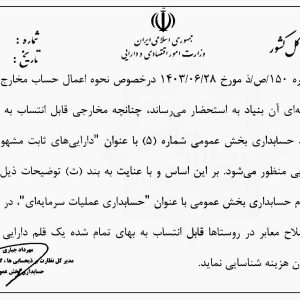 جمهوری اسلامی ایران
وزارت امور اقتصادی و دارایی
شماره :
تاریخ :
کل کشور
ه ۱۵۰/ص/ذ مورخ ۱۴۰۳/۰۶/۲۸ درخصوص نحوه اعمال حساب مخارج
ه‌ای آن بنیاد به استحضار می‌رساند، چنانچه مخارجی قابل انتساب به
د حسابداری بخش عمومی شماره (۵) با عنوان "دارایی‌های ثابت مشهو
یی منظور می‌شود. بر این اساس و با عنایت به بند (ث) توضیحات ذیل
م حسابداری بخش عمومی با عنوان "حسابداری عملیات سرمایه‌ای"، در
لاح معابر در روستاها قابل انتساب به بهای تمام شده یک قلم دارایی
ن هزینه شناسایی نماید.
مهرداد جباری
مدیر کل نظارت بر ذیحسابی ها ،
حسابداری بخش عمو